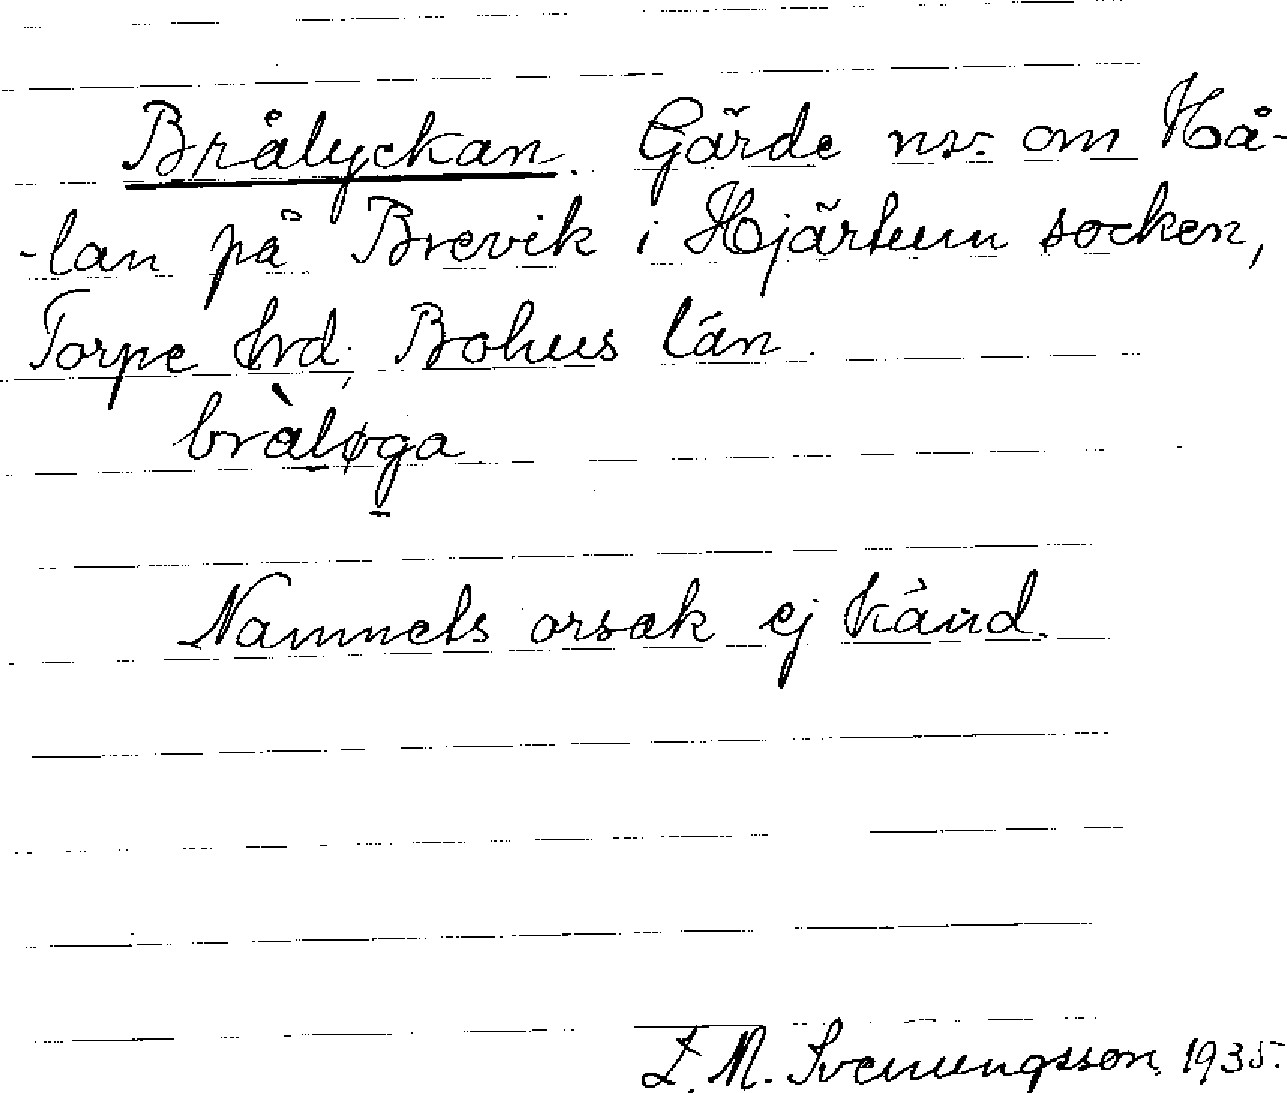 Brålyckan. Gärde nv. om Hå-
-lan på Brevik i Hjärtum socken,
Torpe hrd, Bohus län.
bràløga
Namnets orsak ej känd.
Z. M. Svenungsson 1935.